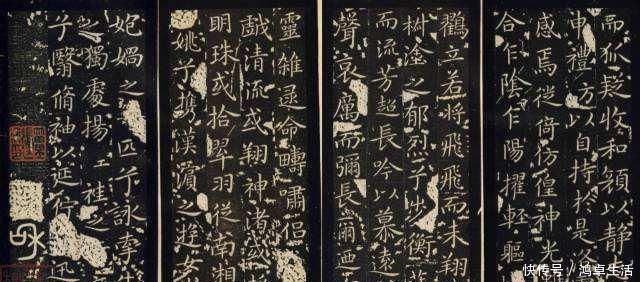 而狐疑收和顏以静
申禮防以自持於是洛
感焉徙倚仿偟神光
合乍陰乍陽擢輕軀
鶴立若將飛飛而未翔
椒塗之郁烈兮步衡薄
而流芳超長吟以慕遠
聲哀厲而彌長爾迺
靈雜遝命疇嘯侣
戲清流或翔神渚或
明珠或拾翠羽從南湘
姚兮攜漢濱之遊女
妃媧之匹兮詠牽
之獨處揚袿之
兮翳脩袖以延佇迅
快传号 / 鸿卓生活